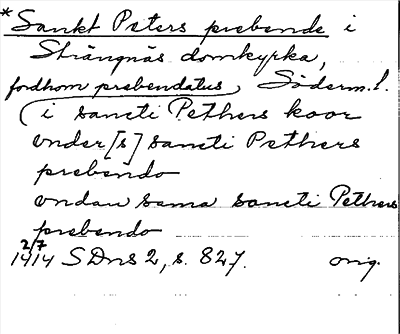 *Sankt Peters prebende i
Strängnäs domkyrka,
fodhom prebendatus, Söderm. l.
(i sancti Pethers koor
vnder [s] sancti Pethers
prebendo
vndan sama sancti Pethers
prebendo
2/7
1414 SDns 2, s. 827. orig.